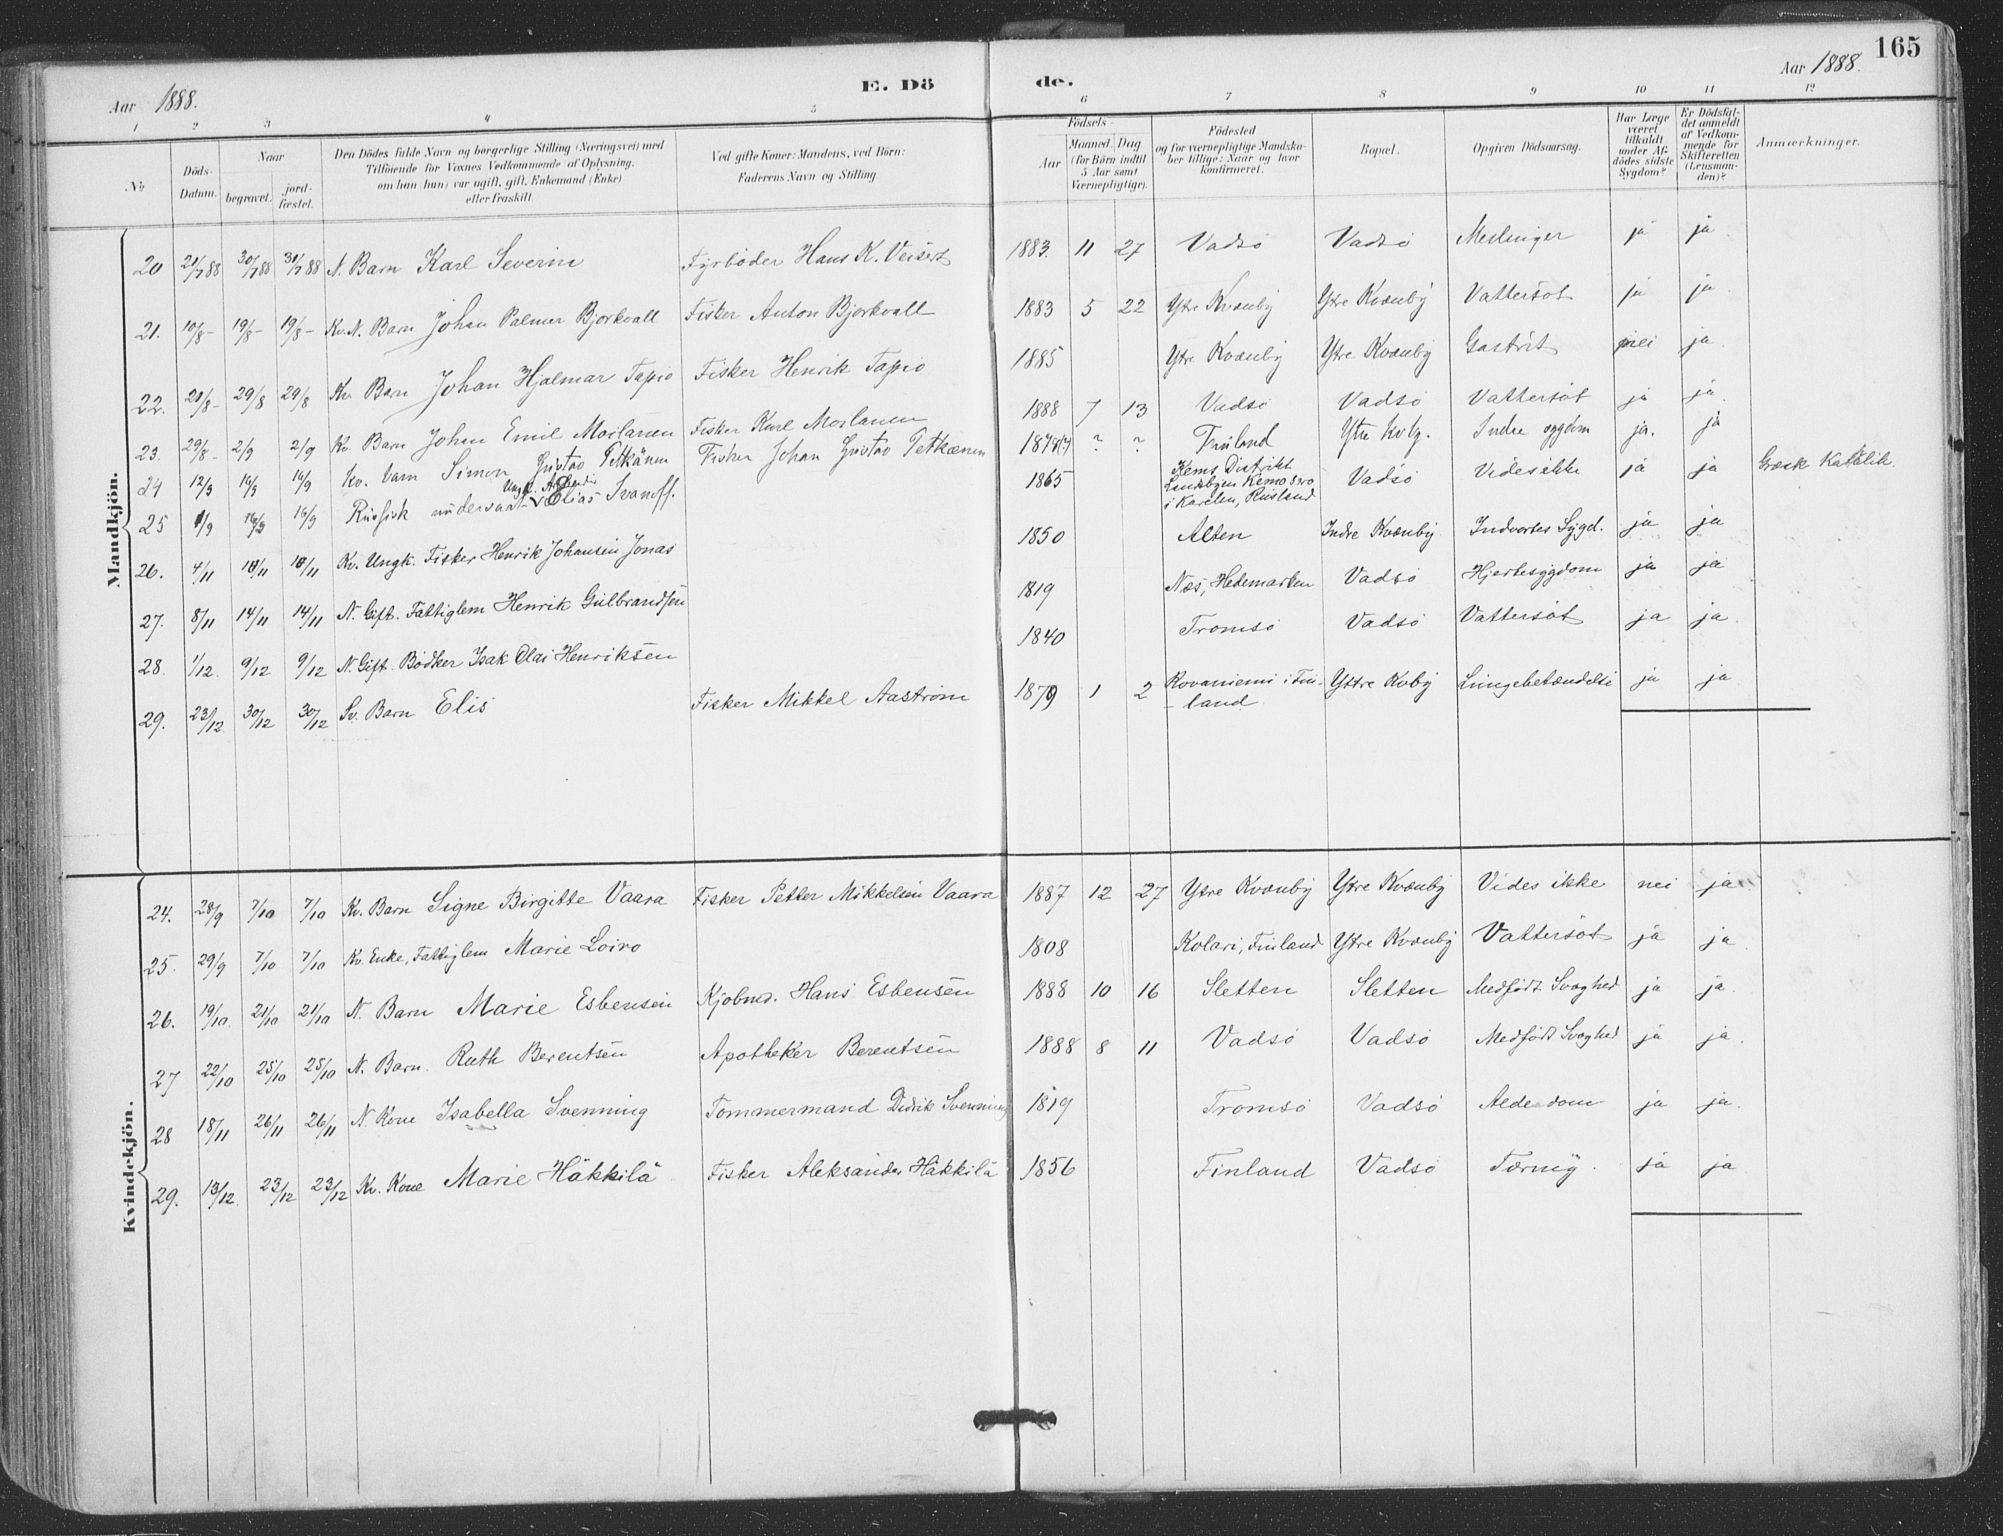 165
Aar 1888. E. Dö de. Aar 1888.
1 2 3 4 5 6 7 8 9 10 11 12
No
Döds-Datum.
Naar
begravet.
jord-fæstet.
Den Dödes fulde Navn og borgerlige Stilling (Næringsvei) med
Tilföiende for Voxnes Vedkommende af Oplysning,
om han (hun) var ugift, gift, Enkemand (Enke)
eller fraskilt.
Ved gifte Koner: Mandens, ved Börn:
Faderens Navn og Stilling.
Födsels-
Aar
Maaned. Dag
(for Börn indtil
5 Aar samt
Værnepligtige).
Födested
og for værnepligtige Mandska-
ber tillige: Naar og hvor
konfirmeret.
Bopæl.
Opgiven Dödsaarsag.
Har Læge
været
tilkaldt
under Af-
dödes sidste
Sygdom?
Er Dödsfal-
det anmeldt
af Vedkom-
mende for
Skifteretten
(Lensman-
den)?
Anmærkninger.
Mandkjön.
20 21/7 88 30/7 88 31/7 88 N. Barn Karl Severin Fyrböder Hans K. Veisert 1883. 11 27 Vadsö Vadsö ja ja
21. 10/8 - 19/8 - 19/8 - Kv. N. Barn Johan Palmer Bjorkvall Fisker Anton Bjorkvall 1883 5 22 Ytre Kvænby Ytre Kvænby Vattersot ja ja
22. 21/8 - 29/8 29/8 Kv. Barn Johan Hjalmar Tapio Fisker Henrik Tapio 1885 Ytre Kvænby Ytre Kvænby Gastrit nei ja
23. 29/8 - 2/9 2/9 Kv. Barn Johan Emil Moilanen Fisker Karl Moilanen 1888 7 13 Vadsö Vadsö Vattersot ja ja
24 12/9 16/9 16/9 Kv. Barn Simon Gustav Petkänen Fisker Johan Gustav Petkænen ? ? Finland Ytre Kvby. Indre sygdom ja. ja
25 16/9 16/9 Russisk undersaat Ungk. Elias Ivanoff. 1865 Kems Distrikt
Landsbyen
i Karelen, Rusland Vadsö Vides ikke ja ja Græsk Katolik.
26. 4/11 11/11 Kv. Ungk. Fisker Henrik Johansen Jonas 1850 Alten Indre Kvænby Indvortes Sygd. ja ja
27. 8/11 14/11 14/11 N. Gift. Fattiglem Henrik Gulbrandsen 1819 Næs, Hedemarken Vadsö Hjertesygdom ja ja
28. 1/12. 9/12 9/12 N. Gift. Bödker Isak Olai Henriksen 1840 Tromsö Vadsö Vattersot ja ja
29. 23/12. 30/12 30/12 Sv. Barn Elis Fisker Mikkel Aaström 1879 1 2 Rovaniemi i Fin-
land Yttre Kvby Lungebetændelse ja ja
Kvindekjön.
24. 28/9 7/10 7/10 Kv. Barn Signe Birgitte Vaara Fisker Petter Mikkelsen Vaara 1887 12 27 Ytre Kvænby Ytre Kvænby Vides ikke nei ja
25. 29/9 7/10 7/10 Kv. Enke, Fattiglem Marie Loivo 1808 Kolari, Finland Ytre Kvænby Vattersot ja ja
26. 19/10. 21/10 21/10 N. Barn Marie Esbensen Kjøbmd. Hans Esbensen 1888 10 16 Sletten Sletten Medfödt Svaghed ja ja.
27 22/10 25/10 25/10 N. Barn. Ruth Berentsen Apotheker Berentsen 1888 8 11 Vadsö Vadsö Medfödt Svaghed ja ja.
28 18/11 26/11 26/11 N. Kone Isabella Svenning Tommermand Didrik Svenning 1819 Tromsö Vadsö Alderdom ja ja.
29. 13/12. 23/12 23/12 Kv. Kone Marie Häkkilä Fisker Aleksander Häkkilä 1856 Finland Vadsö Tæring. ja ja